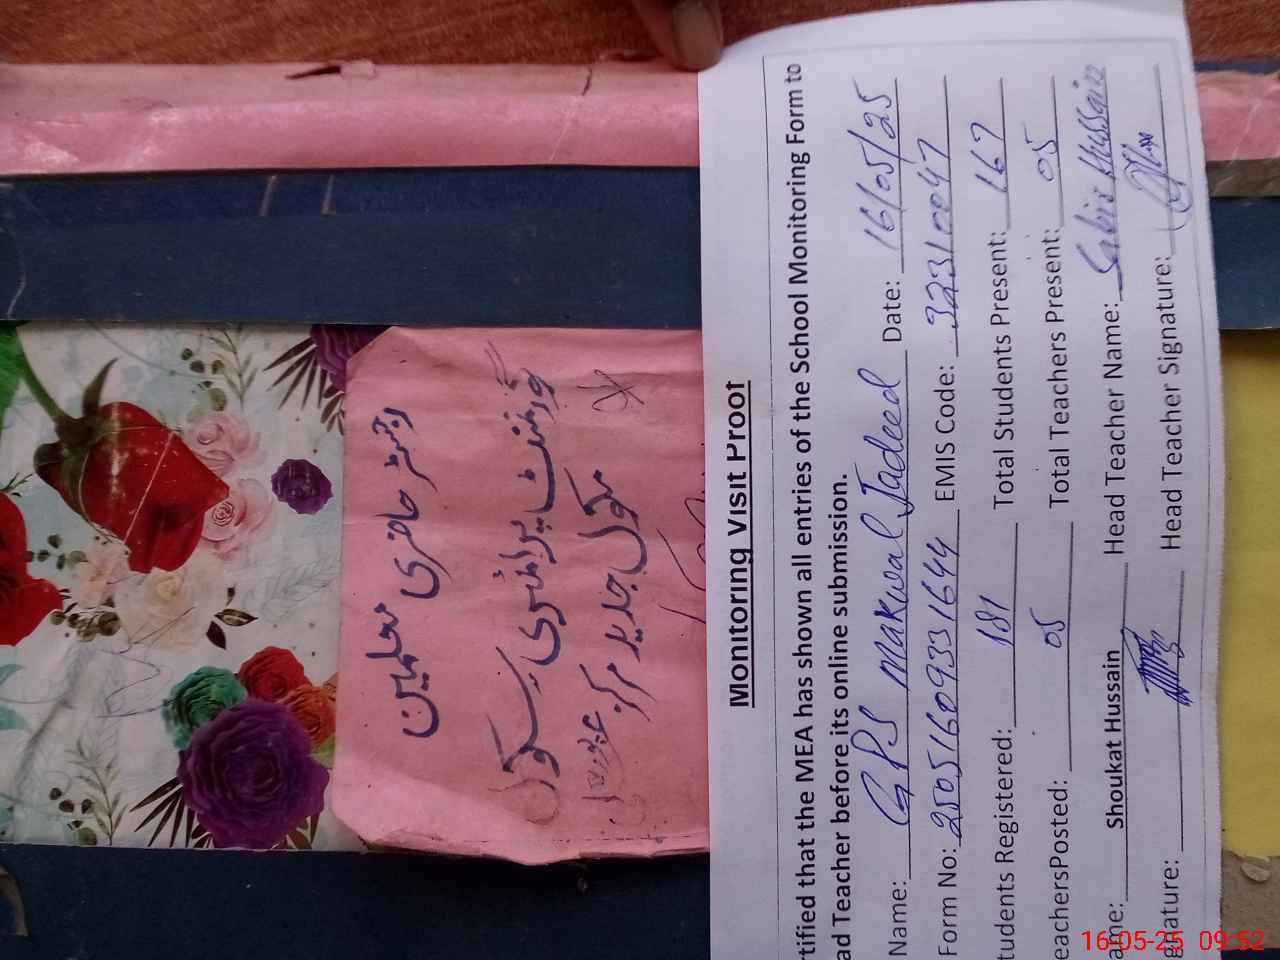 رجسٹر حاضری معلمین
گورنمنٹ پرائمری سکول
مکول جدید مرکز
Monitoring Visit Proof
rtified that the MEA has shown all entries of the School Monitoring Form to
ad Teacher before its online submission.
Name: GPS Makwal Jadeed Date: 16/05/25
Form No: 25051609331644 EMIS Code: 32310047
tudents Registered: 181 Total Students Present: 167
eachersPosted: 05 Total Teachers Present: 05
ame: Shoukat Hussain Head Teacher Name: Sabir Hussain
gnature: Head Teacher Signature:
16-05-25 09:52